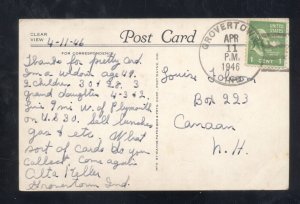 CLEAR
VIEW
Post Card
4-11-46
FOR CORRESPONDENCE
Thanks for pretty card
Im a widow age 49.
2 children 30 & 28 3
Grand daughters 4-3 & 2.
Live 9 mi W. of Plymouth
on U.S. 30. Sell lunches
gas & etc. What
sort of cards do you
collect. Come again
Alta Keller
Grovertown Ind.
GROVERTOWN
APR
11
P.M.
1946
IND.
1 CENT 1
Louis
Box 223
Canaan
N.H.